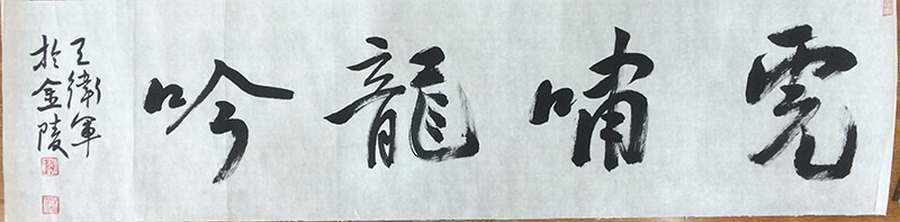 虎嘯龍吟
王衛軍
於金陵